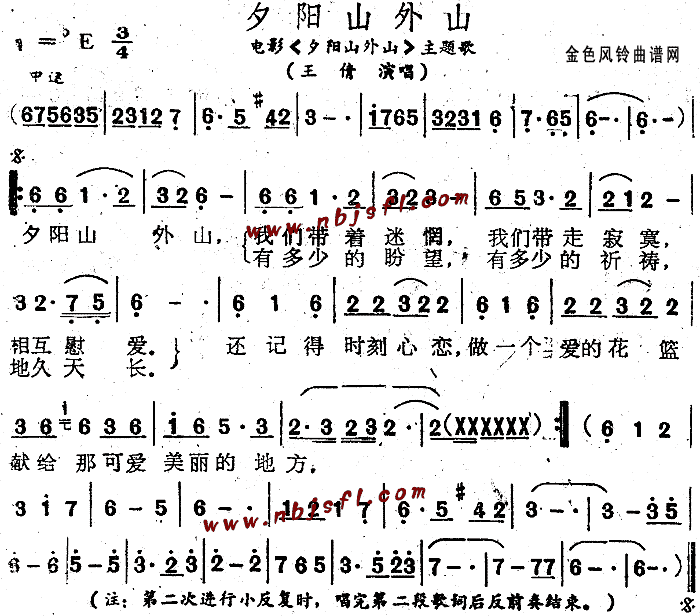 夕阳山外山
1=♭E 3/4
电影《夕阳山外山》主题歌
金色风铃曲谱网
(王倩 演唱)
中速
(675635 | 23127 | 6·5 #42 | 3 - · | 1765 | 32316 | 7·65 | 6 - · | 6 - ·)
6 6 1·2 | 326 - | 6 6 1·2 | 323 - | 6 53·2 | 212 -
夕阳山 外山, 我们带着迷惘, 我们带走寂寞,
有多少的盼望, 有多少的祈祷,
www.nbjsfl.com
32·75 | 6 - · | 6 1 6 | 22322 | 616 | 22322
相互慰 爱. 还记得 时刻心恋,做一个 爱的花篮
地久天 长.
36 636 | 165·3 | 2·3232 | 2 - · | 2(XXXXXX) :| (6 1 2
献给 那可爱 美丽的 地方.
3 1 7 | 6 - 5 | 6 - · | 1217 | 6·5 #42 | 3 - · | 3 - 35
www.nbjsfl.com
6 - 6 | 5 - 5 | 3·23 | 2 - 2 | 765 | 3·523 | 7 - · | 7 - 77 | 6 - · | 6 - · )
(注:第二次进行小反复时,唱完第二段歌词后反前奏结束。)